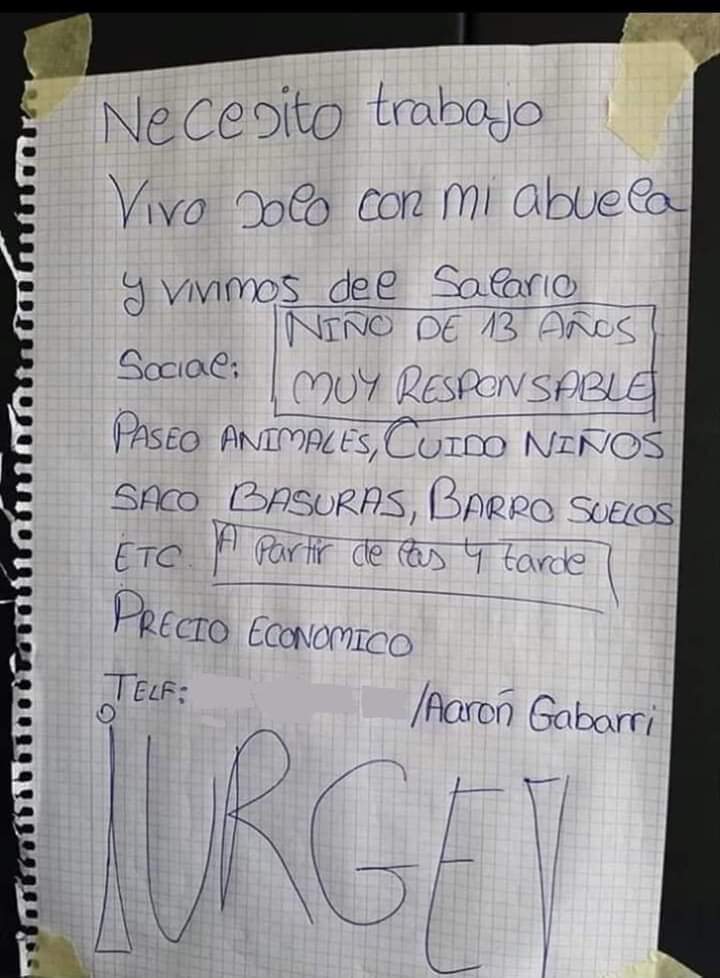 Necesito trabajo
Vivo solo con mi abuela
y vivimos del Salario
Social:
NIÑO DE 13 AÑOS
MUY RESPONSABLE
PASEO ANIMALES, CUIDO NIÑOS
SACO BASURAS, BARRO SUELOS
ETC. A Partir de las 4 tarde
PRECIO ECONOMICO
TELF: /Aaroñ Gabarri
¡URGE!